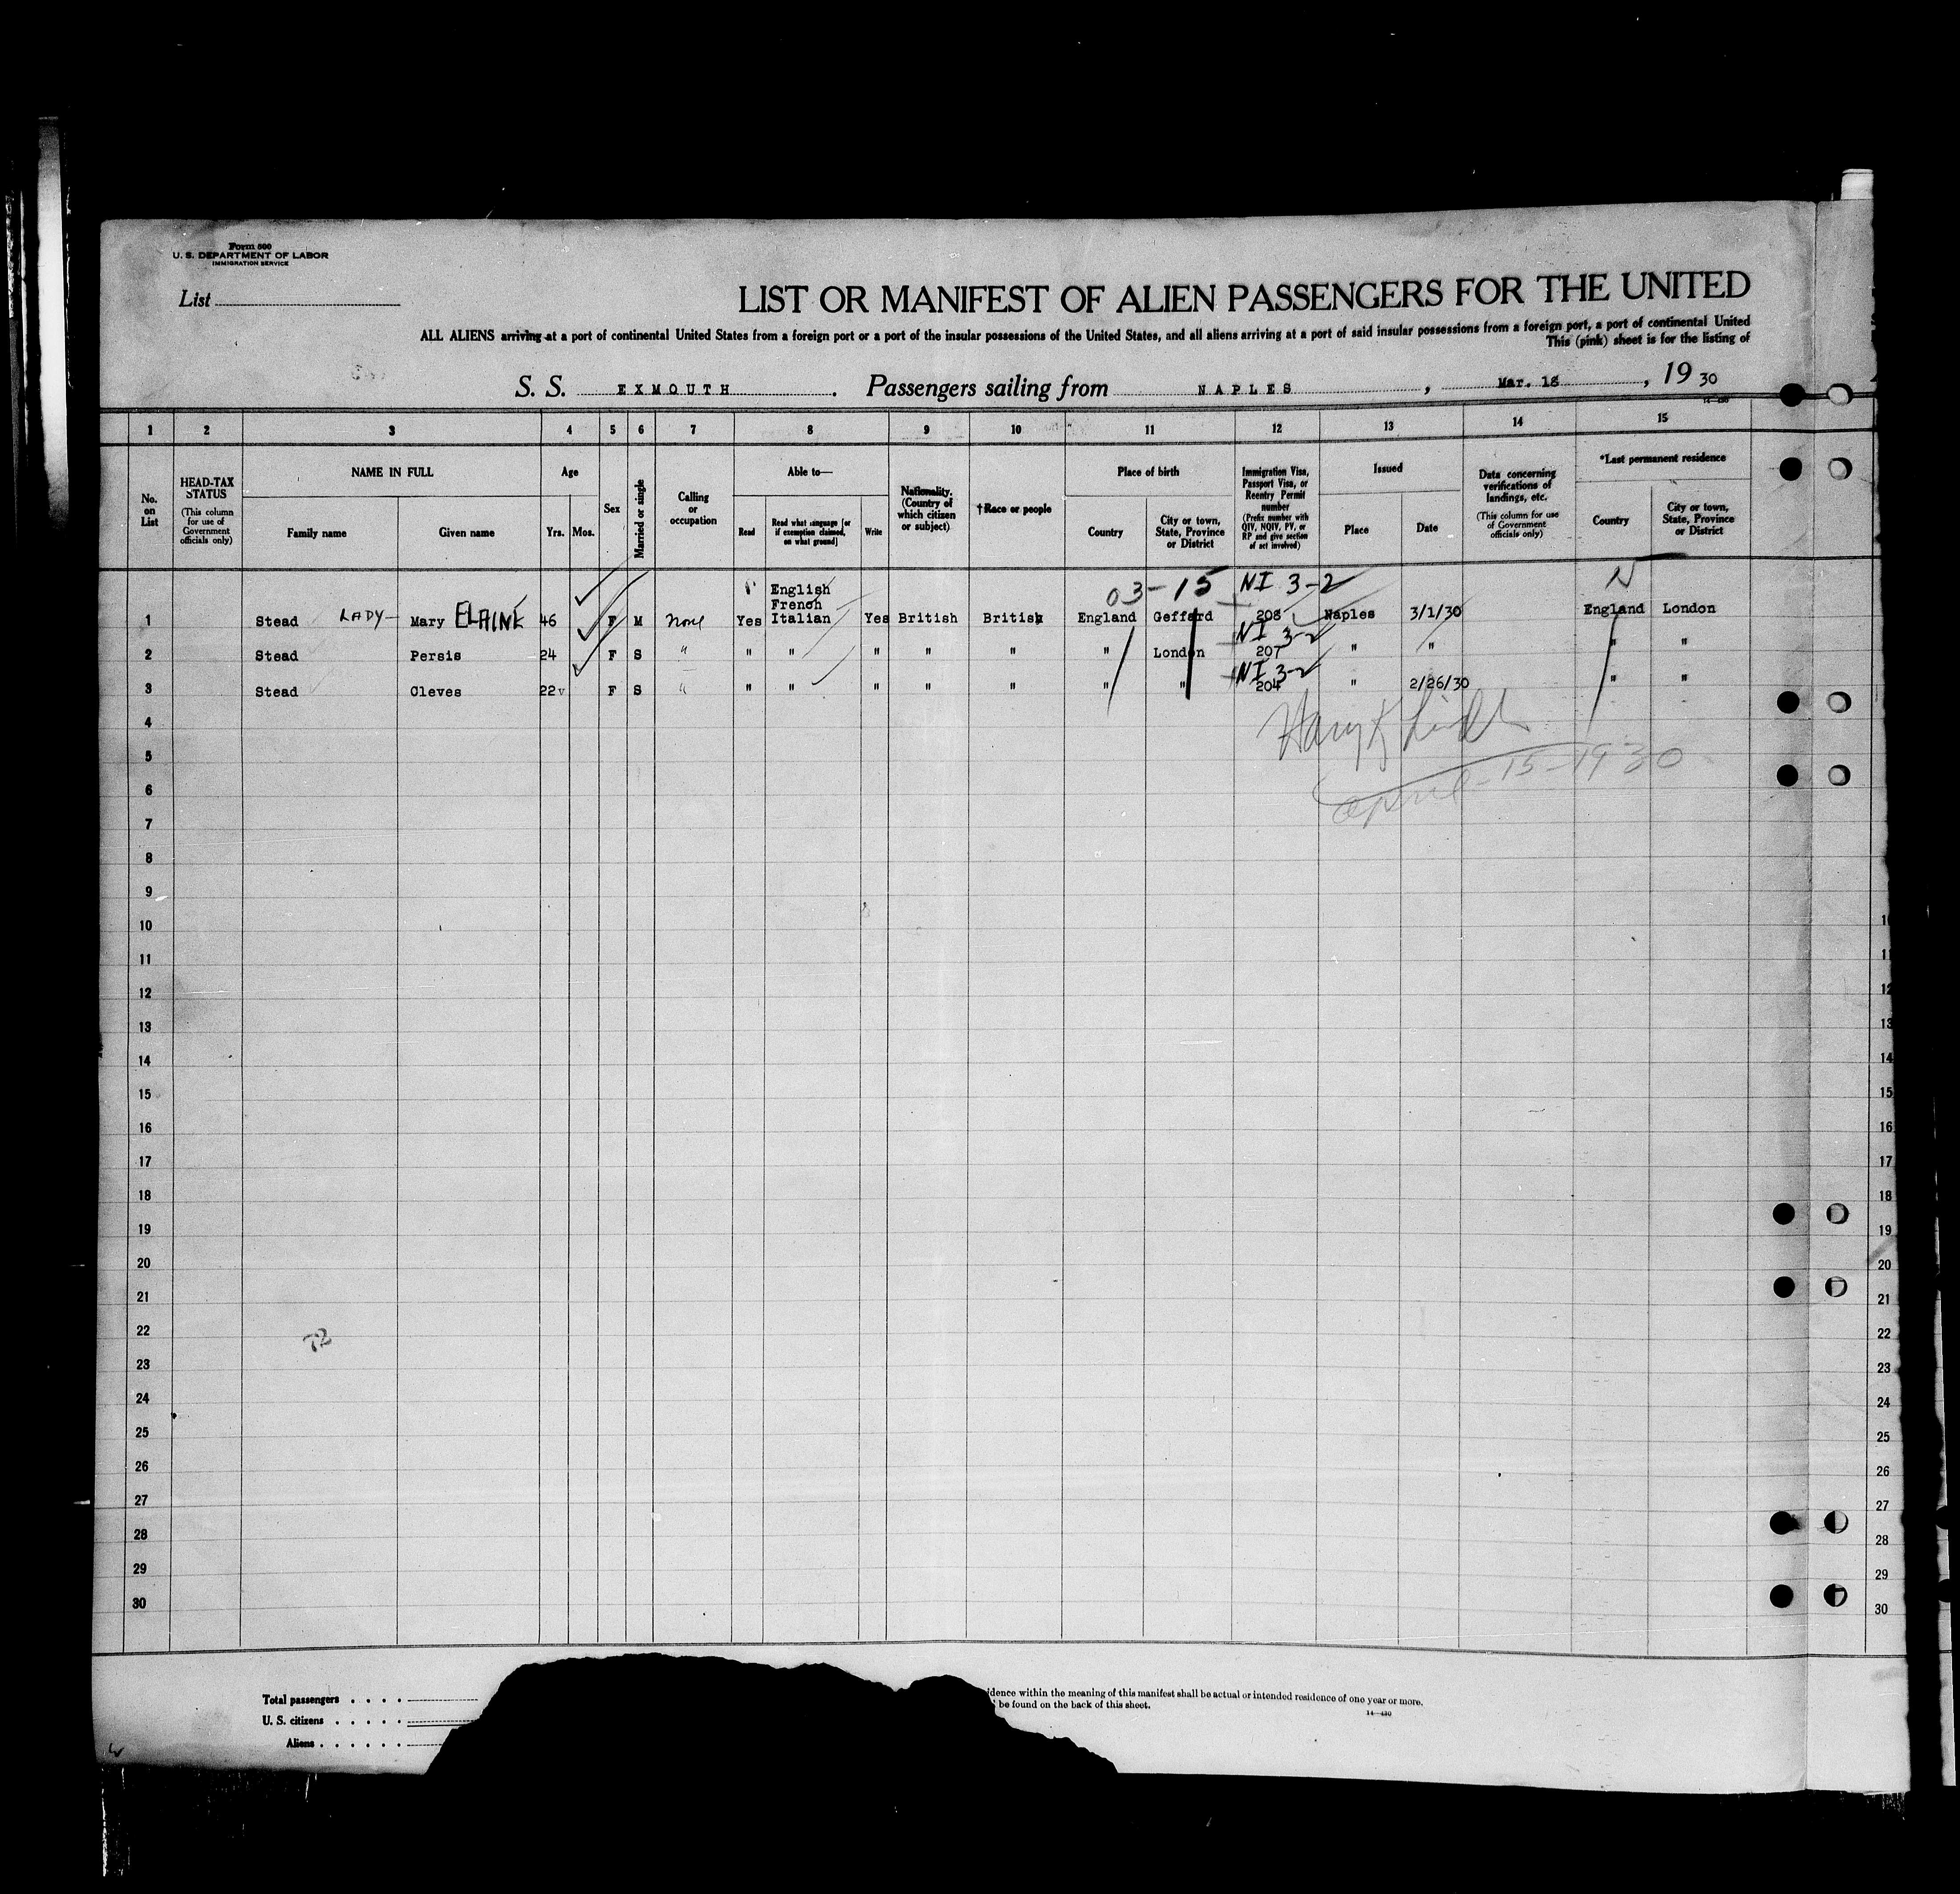 Form 500
U. S. DEPARTMENT OF LABOR
IMMIGRATION SERVICE
List
LIST OR MANIFEST OF ALIEN PASSENGERS FOR THE UNITED
ALL ALIENS arriving at a port of continental United States from a foreign port or a port of the insular possessions of the United States, and all aliens arriving at a port of said insular possessions from a foreign port, a port of continental United
This (pink) sheet is for the listing of
S. S. EXMOUTH . Passengers sailing from NAPLES , Mar. 18 , 19 30
14—430
1 2 3 4 5 6 7 8 9 10 11 12 13 14 15
No. on List
HEAD-TAX STATUS
(This column for use of Government officials only)
NAME IN FULL
Family name Given name
Age
Yrs. Mos.
Sex
Married or single
Calling or occupation
Able to—
Read
Read what language [or if exemption claimed, on what ground]
Write
Nationality. (Country of which citizen or subject)
†Race or people
Place of birth
Country
City or town, State, Province or District
Immigration Visa, Passport Visa, or Reentry Permit number
(Prefix number with QIV, NQIV, PV, or RP and give section of act involved)
Issued
Place Date
Data concerning verifications of landings, etc.
(This column for use of Government officials only)
*Last permanent residence
Country
City or town, State, Province or District
English 03-15 NI 3-2 N
French
1 Stead LADY- Mary ELAINE 46 F M None Yes Italian Yes British British England Gefferd 208 Naples 3/1/30 England London
NI 3-2
2 Stead Persis 24 F S " " " " " " " London 207 " " " "
NI 3-2
3 Stead Cleves 22 F S " " " " " " " " 204 " 2/26/30 " "
4
5
April-15-1930
6
7
8
9
10
11
12
13
14
15
16
17
18
19
20
21
22
23
24
25
26
27
28
29
30
10
11
12
13
14
15
16
17
18
19
20
21
22
23
24
25
26
27
28
29
30
Total passengers
U. S. citizens
Aliens
idence within the meaning of this manifest shall be actual or intended residence of one year or more.
be found on the back of this sheet.
14—430